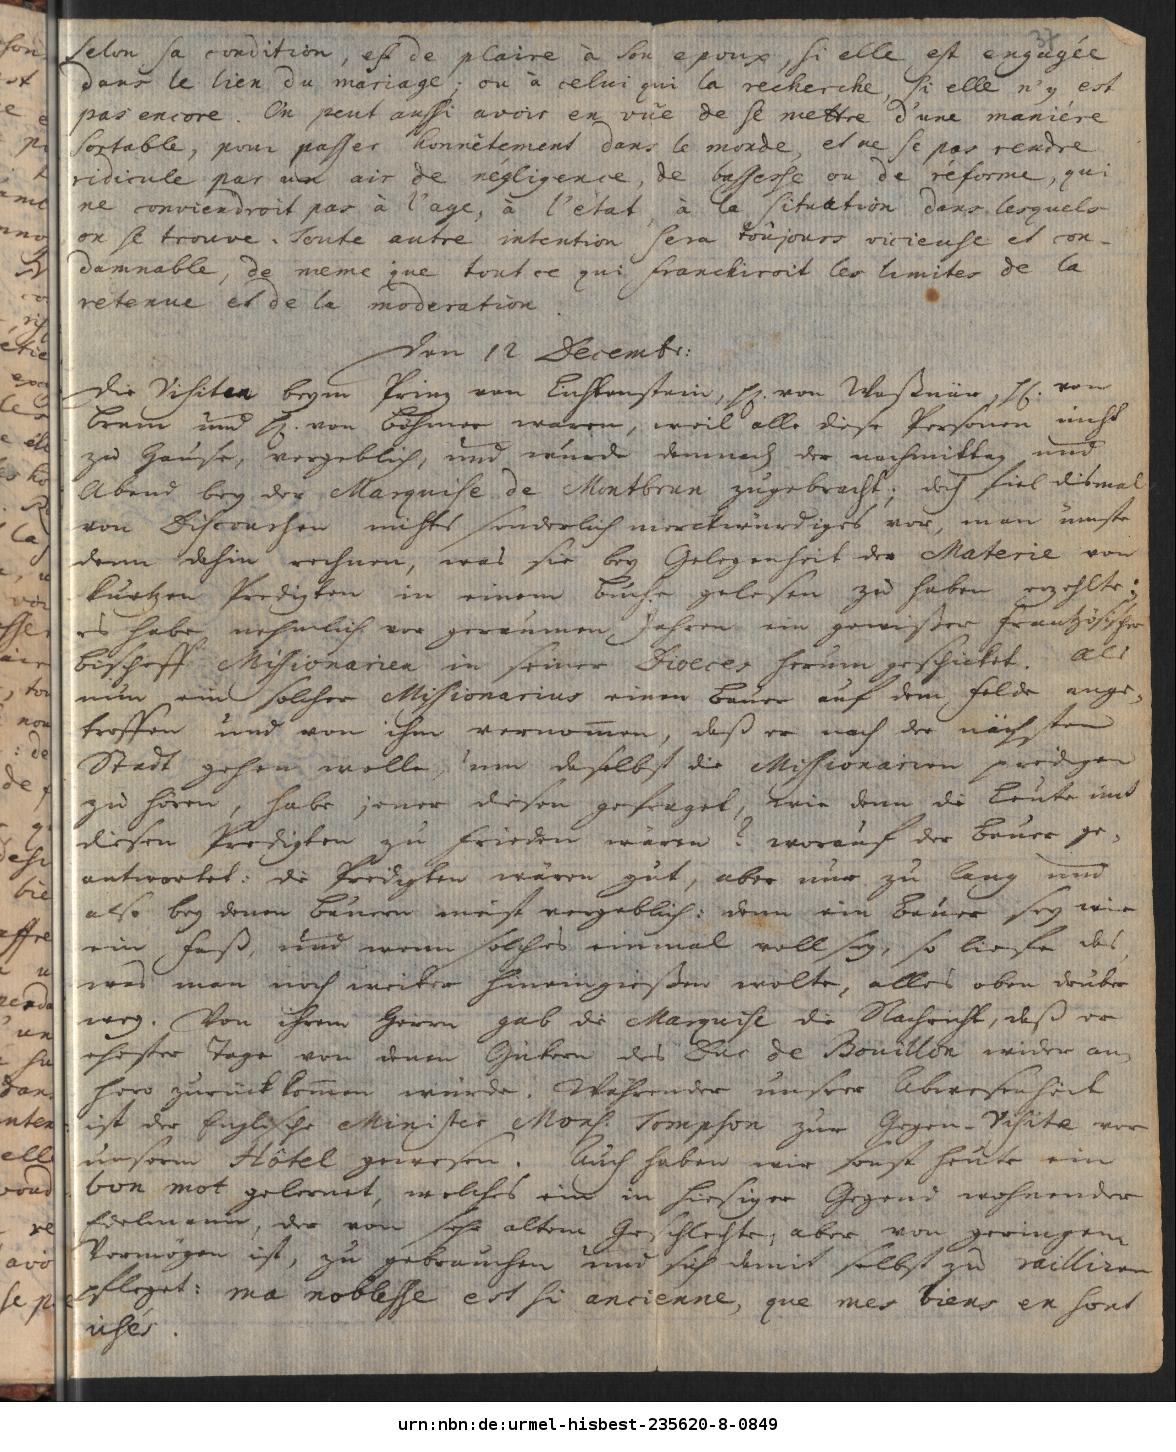 37
selon sa condition, est de plaire à son epoux, si elle est engagée
dans le lien du mariage; ou à celui qui la recherche, si elle n'y est
pas encore. On peut aussi avoir en vûe de se mettre d'une maniére
sortable, pour passer honnêtement dans le monde, et ne se pas rendre
ridicule par un air de négligence, de bassesse ou de réforme, qui
ne conviendroit pas à l'age, à l'état, à la situation dans lesquels
on se trouve. Toute autre intention sera toûjours vicieuse et con-
damnable, de meme que tout ce qui franchiroit les limites de la
retenue et de la moderation.
Den 12 Decembr:
Die Visiten beym Prinz von Lichtenstein, H. von Waßnär, H. von
Brem und H. von Böhmer waren, weil alle diese Personen nicht
zu Hause, vergeblich, und wurde demnach der nachmittag und
Abend bey der Marquise de Montbrun zugebracht; doch fiel dismal
von Discourchen nichts sonderlich merckwürdiges vor, man müste
denn dahin rechnen, was sie bey Gelegenheit der Materie von
kurtzen Predigten in einem Buche gelesen zu haben erzehlte:
es habe nehmlich vor geraumen Jahren ein gewißer Frantzösischer
Bischoff Missionarien in seiner Dioeces herum geschicket. Als
nun ein solcher Missionarius einen Bauer auf dem Felde ange-
troffen und von ihm vernom̄en, daß er nach der nächsten
Stadt gehen wolle, um daselbst die Missionarien predigen
zu hören, habe jener diesen gefraget, wie denn die Leute mit
diesen Predigten zu frieden wären? worauf der Bauer ge-
antwortet: die Predigten wären gut, aber nur zu lang und
also bey denen Bauern meist vergeblich: denn ein Bauer sey wie
ein Faß, und wenn solches einmal voll sey, so lieffe das,
was man noch weiter hineingießen wolte, alles oben drüber
weg. Von ihrem Herrn gab die Marquise die Nachricht, daß er
ehester Tage von denen Gütern des Duc de Bouillon wider an-
hero zurück kom̄en würde. Währender unsrer Abwesenheit
ist der Englische Minister Mons. Tompson zur Gegen-Visite vor
unserm Hôtel gewesen. Auch haben wir sonst heute ein
bon mot gelernet, welches ein in hiesiger Gegend wohnender
Edelmann, der von sehr altem Geschlechte, aber von geringem
Vermögen ist, zu gebrauchen und sich damit selbst zu railliren
pfleget: ma noblesse est si ancienne, que mes biens en sont
usés.
urn:nbn:de:urmel-hisbest-235620-8-0849